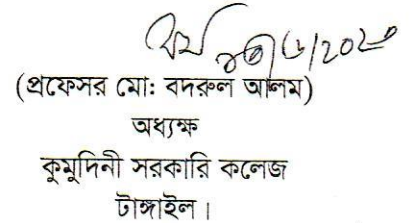 (প্রফেসর মো: বদরুল আলম)
অধ্যক্ষ
কুমুদিনী সরকারি কলেজ
টাঙ্গাইল।